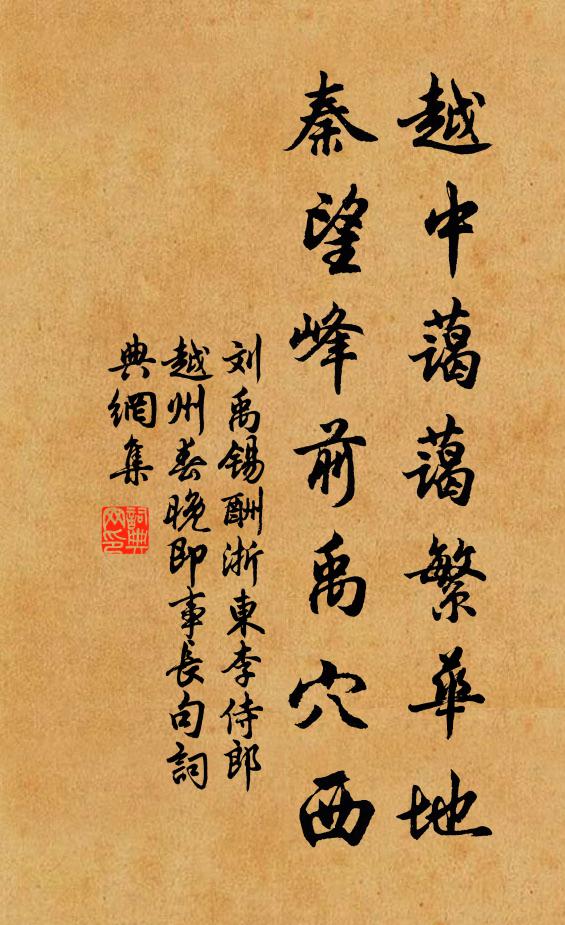 越中蔼蔼繁華地
秦望峰前禹穴西
刘禹锡酬浙東李侍郎
越州春晚即事長句詞
典網集
詞典
网印